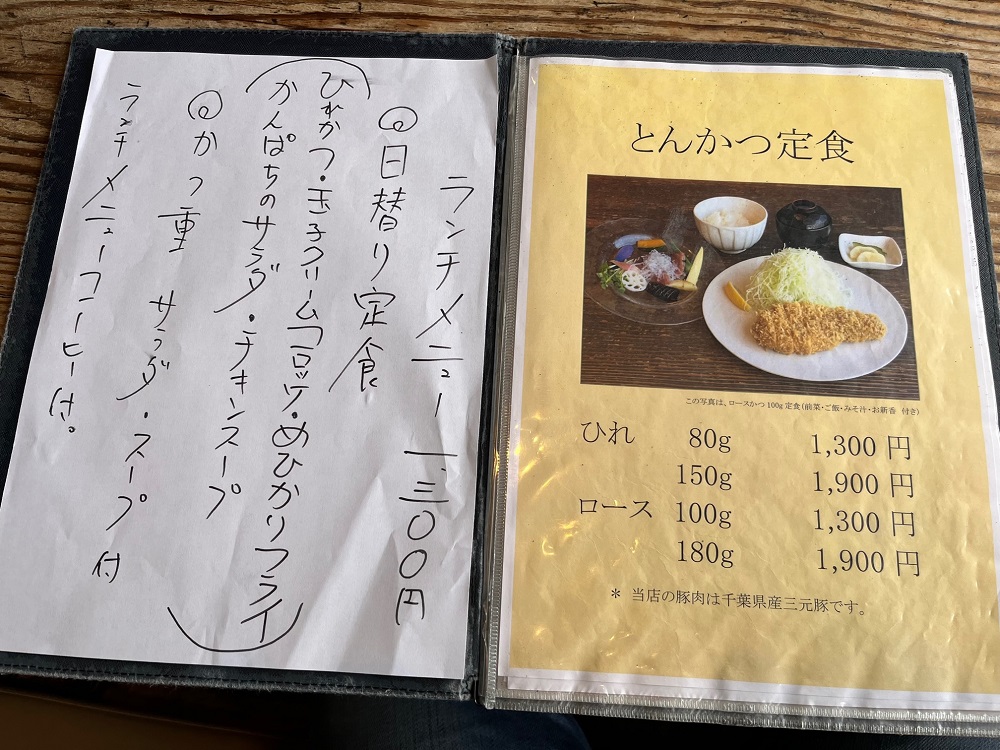 ランチメニュー 一、三〇〇円
◎日替り定食
(ひれかつ・玉子クリームコロッケ・めひかりフライ
かんぱちのサラダ・チキンスープ)
◎かつ重 サラダ・スープ付
ランチメニューコーヒー付。
とんかつ定食
この写真は、ロースかつ100g定食(前菜・ご飯・みそ汁・お新香 付き)
ひれ 80g 1,300円
150g 1,900円
ロース 100g 1,300円
180g 1,900円
* 当店の豚肉は千葉県産三元豚です。